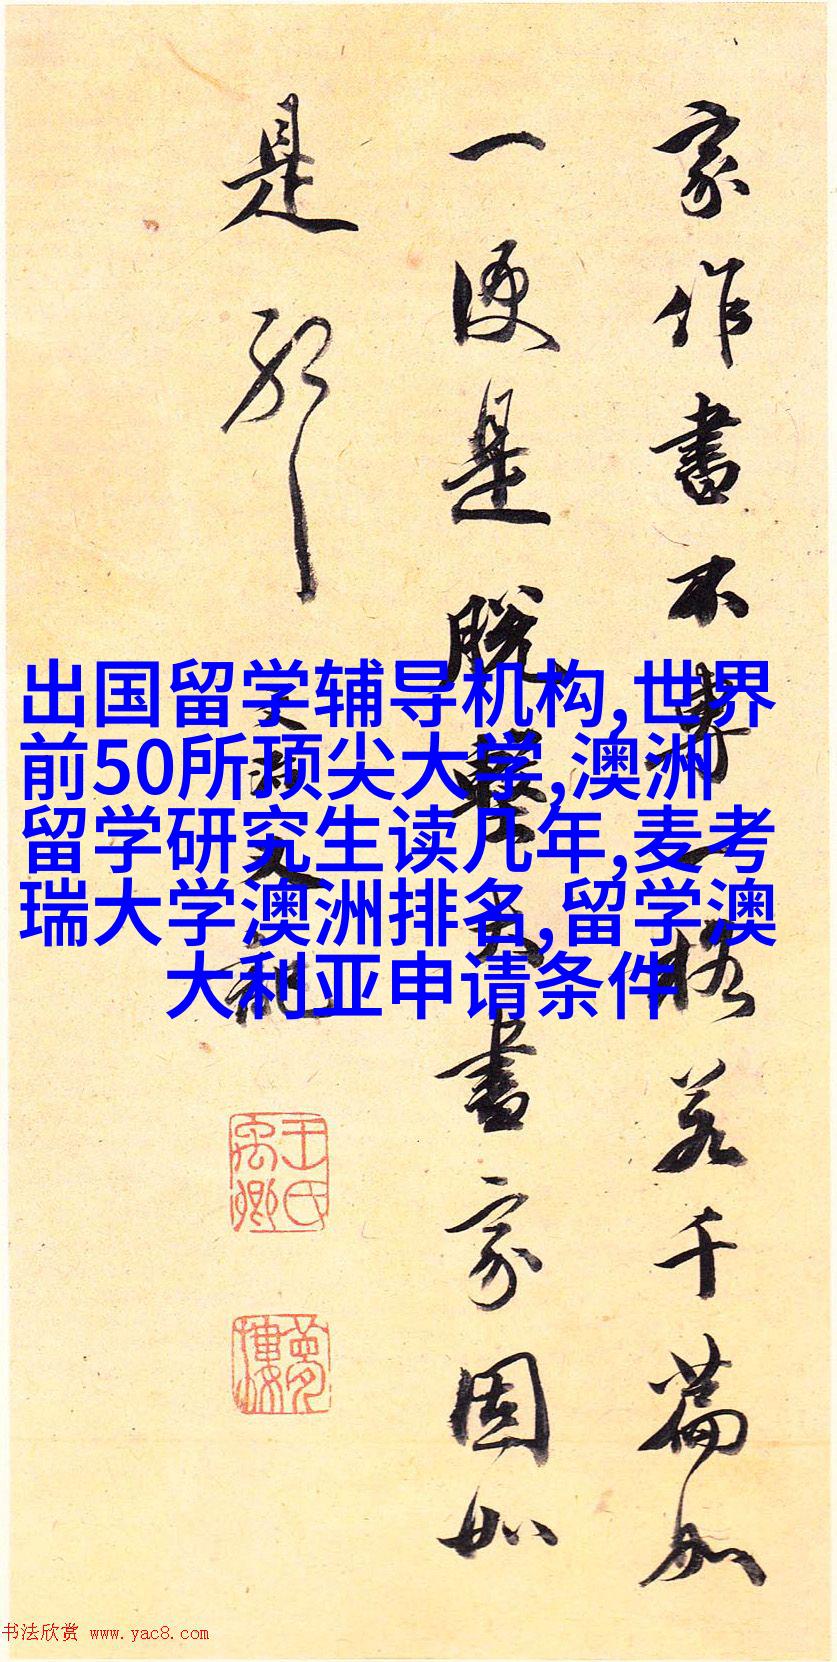 家作書不專一體若千篇如
一便是脱墼
書家固如
是耶
文治
王氏禹卿
夢樓
出国留学辅导机构,世界
前50所顶尖大学,澳洲
留学研究生读几年,麦考
瑞大学澳洲排名,留学澳
大利亚申请条件
书法欣赏 www.yac8.com